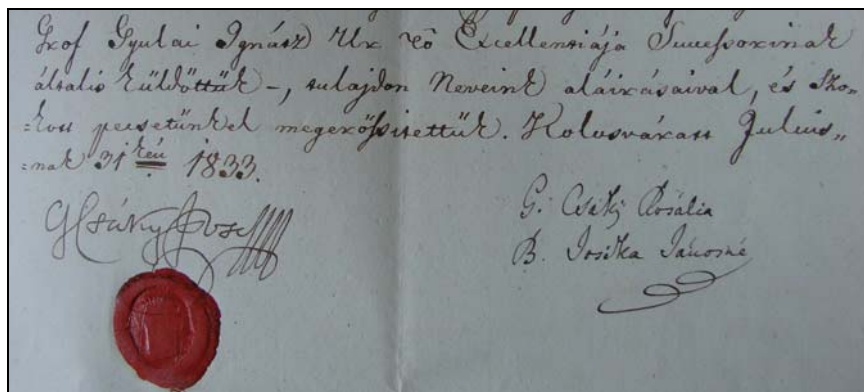 Grof Gyulai Ignátz Ur eô Excellentiája Successorinak
általis küldöttük -, tulajdon Neveink aláirásaival, és Szo„
„kott petsetünkel megerőssitettük. Kolosváratt Julius„
„nak 31 kén 1833.
G Csáky Josef
G. Csáky Rosália
B. Josika Jánosné